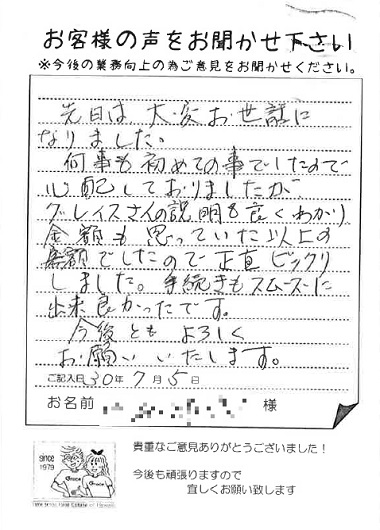 お客様の声をお聞かせ下さい
※今後の業務向上の為ご意見をお聞かせください。
先日は、大変お世話に
なりました。
何事も初めての事でしたので
心配しておりましたが
グレイスさんの説明も良くわかり
金額も思っていた以上の
高額でしたので正直ビックリ
しました。手続きもスムーズに
出来良かったです。
今後ともよろしく
お願いいたします。
ご記入日30年7月5日
お名前 様
since
1979
Grace
Grace
貴重なご意見ありがとうございました！
今後も頑張りますので
宜しくお願い致します